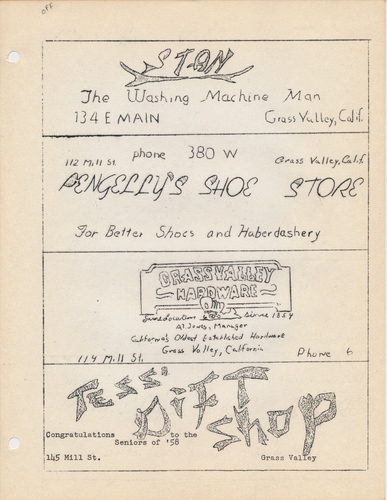 OFF
STAN
The Washing Machine Man
134 E MAIN Grass Valley, Calif.
112 Mill St. phone 380 W Grass Valley, Calif.
PENGELLY'S SHOE STORE
For Better Shoes and Haberdashery
GRASS VALLEY
HARDWARE
Same Location Since 1854
Al Jones, Manager
California's Oldest Established Hardware
Grass Valley, California
114 Mill St. Phone 6
Tess's
Gift
Shop
Congratulations to the
Seniors of '58
145 Mill St. Grass Valley